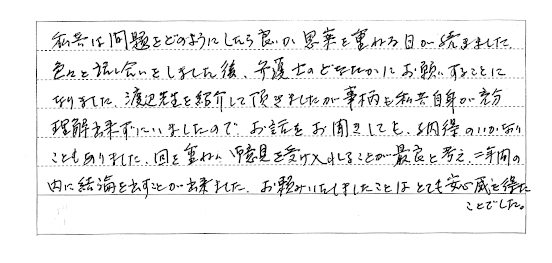 私共は問題をどのようにしたら良いか思案を重ねる日が続きました。
色々と話し合いをしました後、弁護士のどなたかにお願いすることに
なりました。渡辺先生を紹介して頂きましたが事柄も私共自身が充分
理解出来ずにいましたので、お話をお聞きしても、納得のいかない
こともありました。回を重ねい御意見を受け入れることが最良と考え、二年間の
内に結論を出すことが出来ました。お頼みいたしましたことはとても安心感を得た
ことでした。